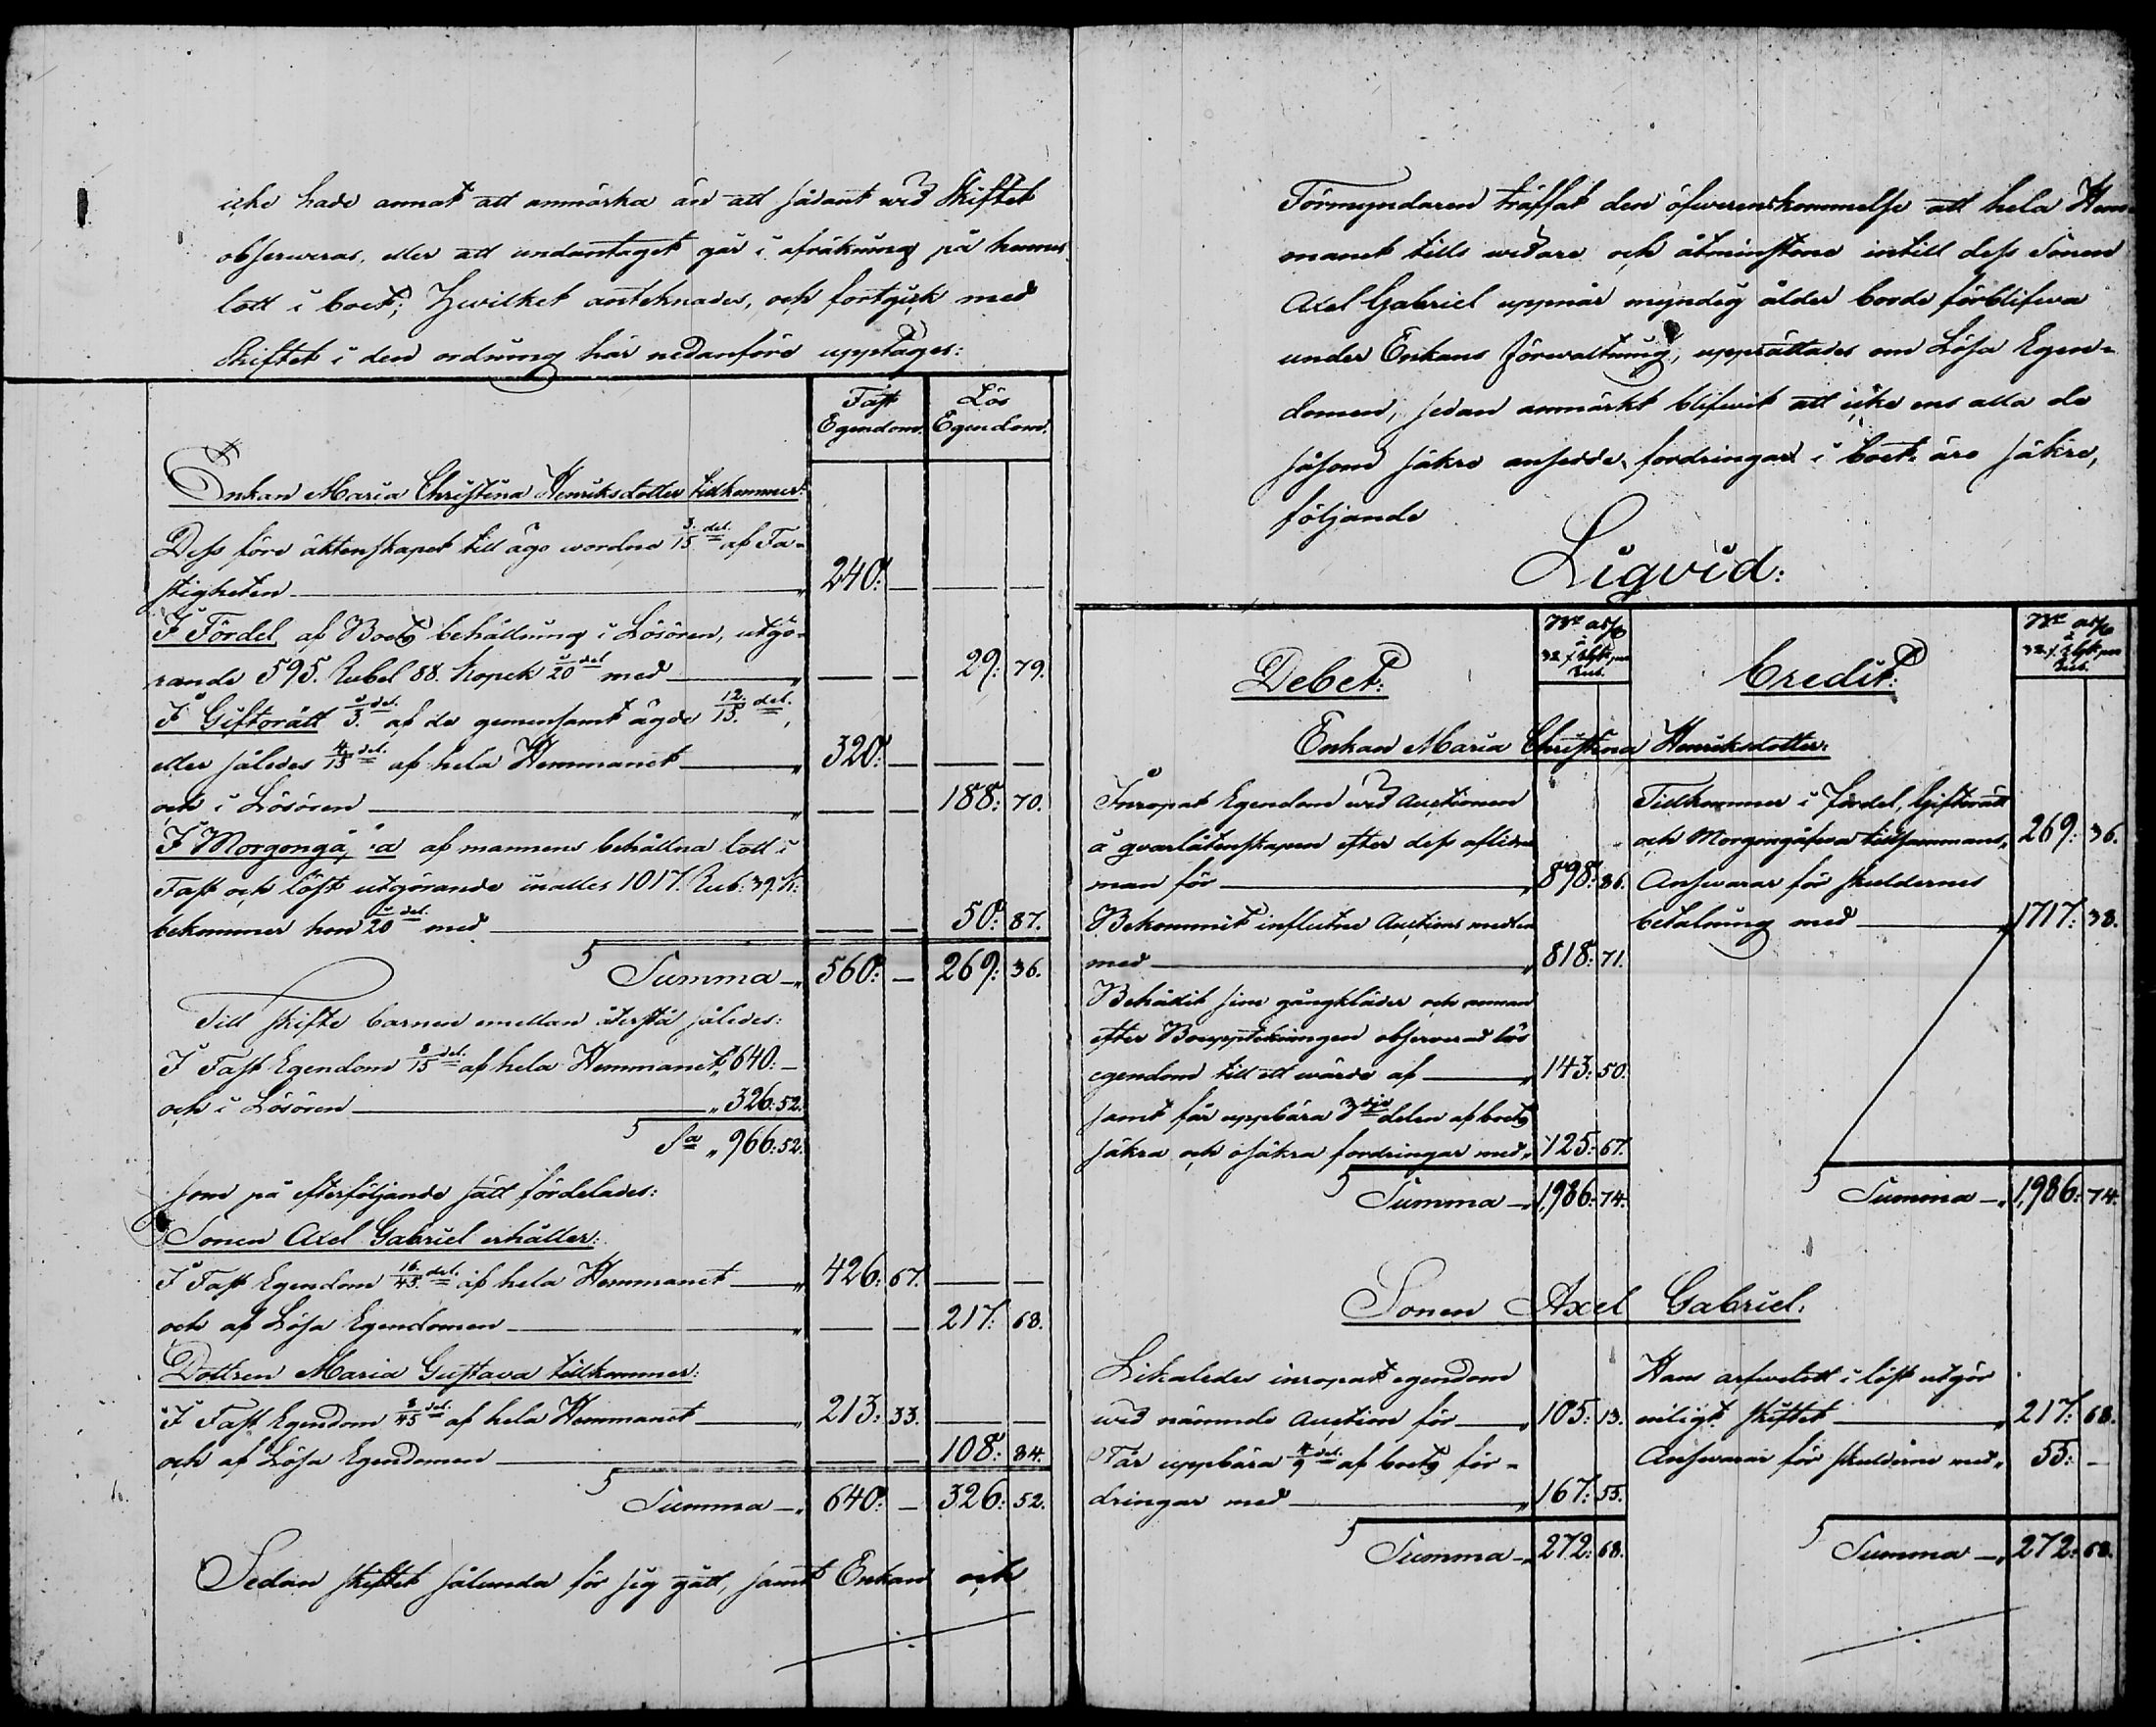 icke hade annat att anmärka än att sådant wid Skiftet
observeras, eller att undantaget går i afräkning på hennes
lott i boet; Hwilket anteknades, och fortgick med
Skiftet i den ordning här nedanföre upptages:
Fast Egendom. Lös Egendom.
Enkan Maria Christina Henriksdotter tillkommer:
Dess före äktenskapet till ägo wordne 3/15 del. af Fa-
stigheten — " 240: — — —
I Fördel af Boets behållning i Lösören, utgö-
rande 595. Rubel 88. Kopek 1/20 del med — " — — 29: 79.
I Giftorätt 1/3. del. af de gemensamt ägde 12/15. del.,
eller således 4/15 del. af hela Hemmanet — " 320: — — —
och i Lösören — " — — 188: 70.
I Morgongåfva af mannens behållna lott i
Fast och löst utgörande inalles 1017. Rub: 39. K:
bekommer hon 1/20 del. med — — — 50: 87.
Summa —" 560: — 269: 36.
Till skifte barnen emellan återstå således:
I Fast Egendom 8/15 del. af hela Hemmanet " 640: —
och i Lösören — " 326: 52.
Sa " 966: 52.
som på efterföljande sätt fördelades:
Sonen Axel Gabriel erhåller:
I Fast Egendom 16/45. del. af hela Hemmanet — " 426: 67. — —
och af Lösa Egendomen — " — — 217: 68.
Dottren Maria Gustava tillkommer:
I Fast Egendom 8/45 del. af hela Hemmanet — " 213: 33. — —
och af Lösa Egendomen — — — 108: 84.
Summa —" 640: — 326: 52.
Sedan skiftet sålunda för sig gått, samt Enkan och
Förmyndaren träffat den öfwerenskommelse att hela Hem-
manet tills widare och åtminstone intill dess Sonen
Axel Gabriel uppnår myndig ålder borde förblifwa
under Enkans förwaltning, upprättades om Lösa Egen-
domen, sedan anmärkt blifwit att icke ens alla de
såsom säkre ansedde fordringar i boet äro säkre,
följande
Liqvid:
Debet: Credit:
Enkan Maria Christina Henriksdotter:
Inropat Egendom wid Auctionen
å qvarlåtenskapen efter dess aflidne
man för — " 898: 86.
Bekommit influtne Auctions medlen
med — " 818: 71.
Behållit sine gångkläder och annan
efter Bouppteckningen observerad lös
egendom till ett wärde af — " 143: 50.
samt får uppbära 3dje delen af boets
säkra och osäkra fordringar med " 125: 67.
Summa —" 1,986: 74.
Tillkommer i Fördel, Giftorätt
och Morgongåfwa tillsammans " 269: 36.
Answarar för skuldernes
betalning med — " 1717: 38.
Summa —" 1,986: 74.
Sonen Axel Gabriel.
Likaledes inropat egendom
wid nämnde Auction för — " 105: 13.
Får uppbära 4/9 del. af boets for-
dringar med — " 167: 55.
Summa —" 272: 68.
Hans arfwelott i löst utgör
enligt skiftet — " 217: 68.
Answarar för skulderne med " 55: —
Summa —" 272: 68.